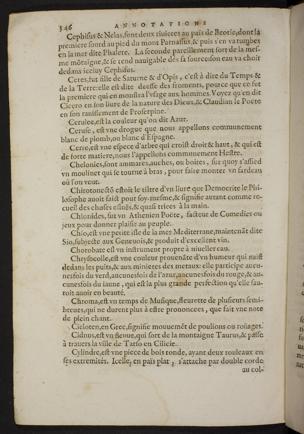 346 ANNOTATIONS
Cephisus & Nelas, sont deux riuieres au païs de Beotie, dont la
premiere sourd au pied du mont Parnassus, & puis s'en va tumber
en la mer dite Phalere. La seconde pareillement sort de la mes-
me mõtaigne, & se rend nauigable dés sa source: son eau va choir
dedans iceluy Cephisus.
Ceres, fut fille de Saturne & d'Opis, c'est à dire du Temps &
de la Terre: elle est dite deesse des fromens, pource que ce fut
la premiere qui en monstra l'vsage aux hommes. Voyez qu'en dit
Cicero en son liure de la nature des Dieux, & Claudian le Poëte
en son rauissement de Proserpine.
Cerulee, est la couleur qu'on dit Azur.
Ceruse, est vne drogue que nous appellons communement
blanc de plomb, ou blanc d'Espagne.
Cerre, est vne espece d'arbre qui croist droit & haut, & qui est
de forte matiere, nous l'appellons communement Hestre.
Chelonies, sont amarres, auches, ou boites, sur quoy s'assied
vn moulinet qui se tourne à bras, pour faire monter vn fardeau
où l'on veut.
Chirotonetõ estoit le tiltre d'vn liure que Democrite le Phi-
losophe auoit fait pour soy-mesme, & signifie autant comme re-
cueil des choses esleuës, & quasi triées à la main.
Chionides, fut vn Athenien Poëte, facteur de Comedies ou
jeux pour donner plaisir au peuple.
Chio, est vne petite isle de la mer Mediterranee, maintenãt dite
Sio, subjecte aux Geneuois, & produit d'excellent vin.
Chorobate est vn instrument propre à niueller eau.
Chrysocolle, est vne couleur prouenãte d'vn humeur qui naist
dedans les puits, & aux minieres des metaux: elle participe aucu-
nesfois du verd, aucunesfois de l'azur, aucunesfois du rouge, & au-
cunesfois du iaune, qui est la plus grande perfection qu'elle sau-
roit auoir en beauté.
Chroma, est vn temps de Musique, fleurette de plusieurs semi-
breues, qui ne durent plus à estre prononcees, que fait vne note
de plein chant.
Cicloten, en Grec, signifie mouuemẽt de poulions ou roüages.
Cidnus, est vn fleuue, qui sort de la montaigne Taurus, & passe
à trauers la ville de Tarso en Cilicie.
Cylindre, est vne piece de bois ronde, ayant deux rouleaux en
ses extremités. Icelle, en païs plat, s'attache par double corde
au col-